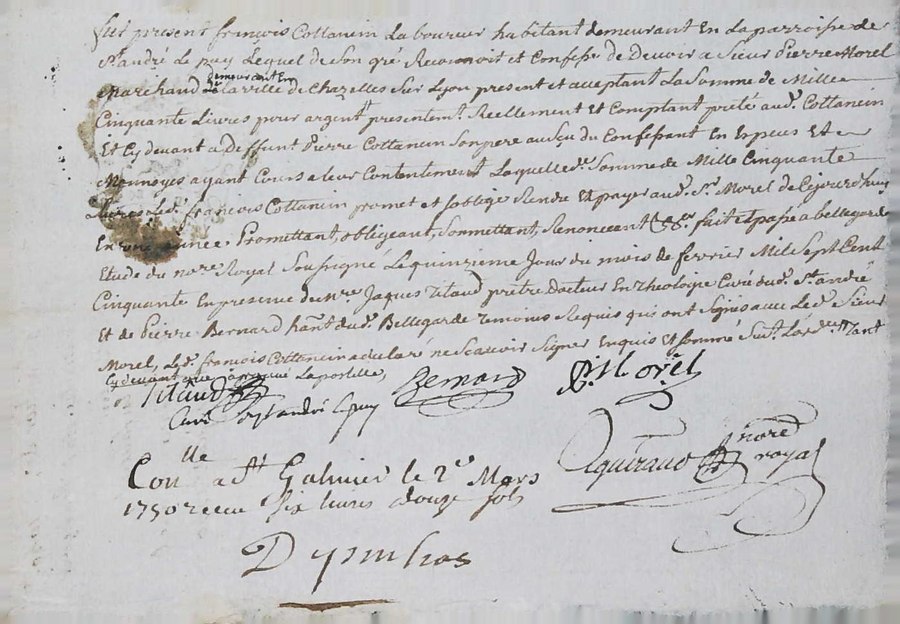 fut present françois Cottancin Laboureur habitant demeurant En La parroisse de
St. andré Le puy Lequel de Son gré Reconnoit et Confesse de Devoir a Sieur Pierre Morel
Marchand demeurant En la ville de Chazelles Sur Lyon present et acceptant La Somme de Mille
Cinquante Livres pour argent presentemt. Reellement Et Comptant preté aud. Cottancin
Et Cy devant a Deffunt Pierre Cottancin Son pere au Sçu du Confessant En Especes Et
Monnoyes ayant Cours a leur Contentement Laquelle de. Somme de Mille Cinquante
Livres Led. françois Cottancin promet et Soblige Rendre Et payer aud. Sr. Morel de Cejourdhuy
En une année Promettant, obligeant, Soumettant, Renonceant &a. fait et passé a bellegarde
Etude du nore. Royal Soussigné Le quinzieme Jour du mois de fevrier Mil Sept Cent
Cinquante En presence de Mre. Jaques Titaud prêtre Docteur En Theologie Curé dud. St. andré
Et de Pierre Bernard hant. dud. Bellegarde Temoins Requis qui ont Signés avec Led. Sieur
Morel, Led. françois Cottancin a declaré ne Scavoir Signer Enquis Et Sommé Suivt. Lord.ce tant
Cy devant que approuvé Lapostille,
Titaud Bernard P. Morel
Curé de St andré le puy
Conlle a St Galmier le 2e Mars
1750 receu Six livres douze sols
nore
royal